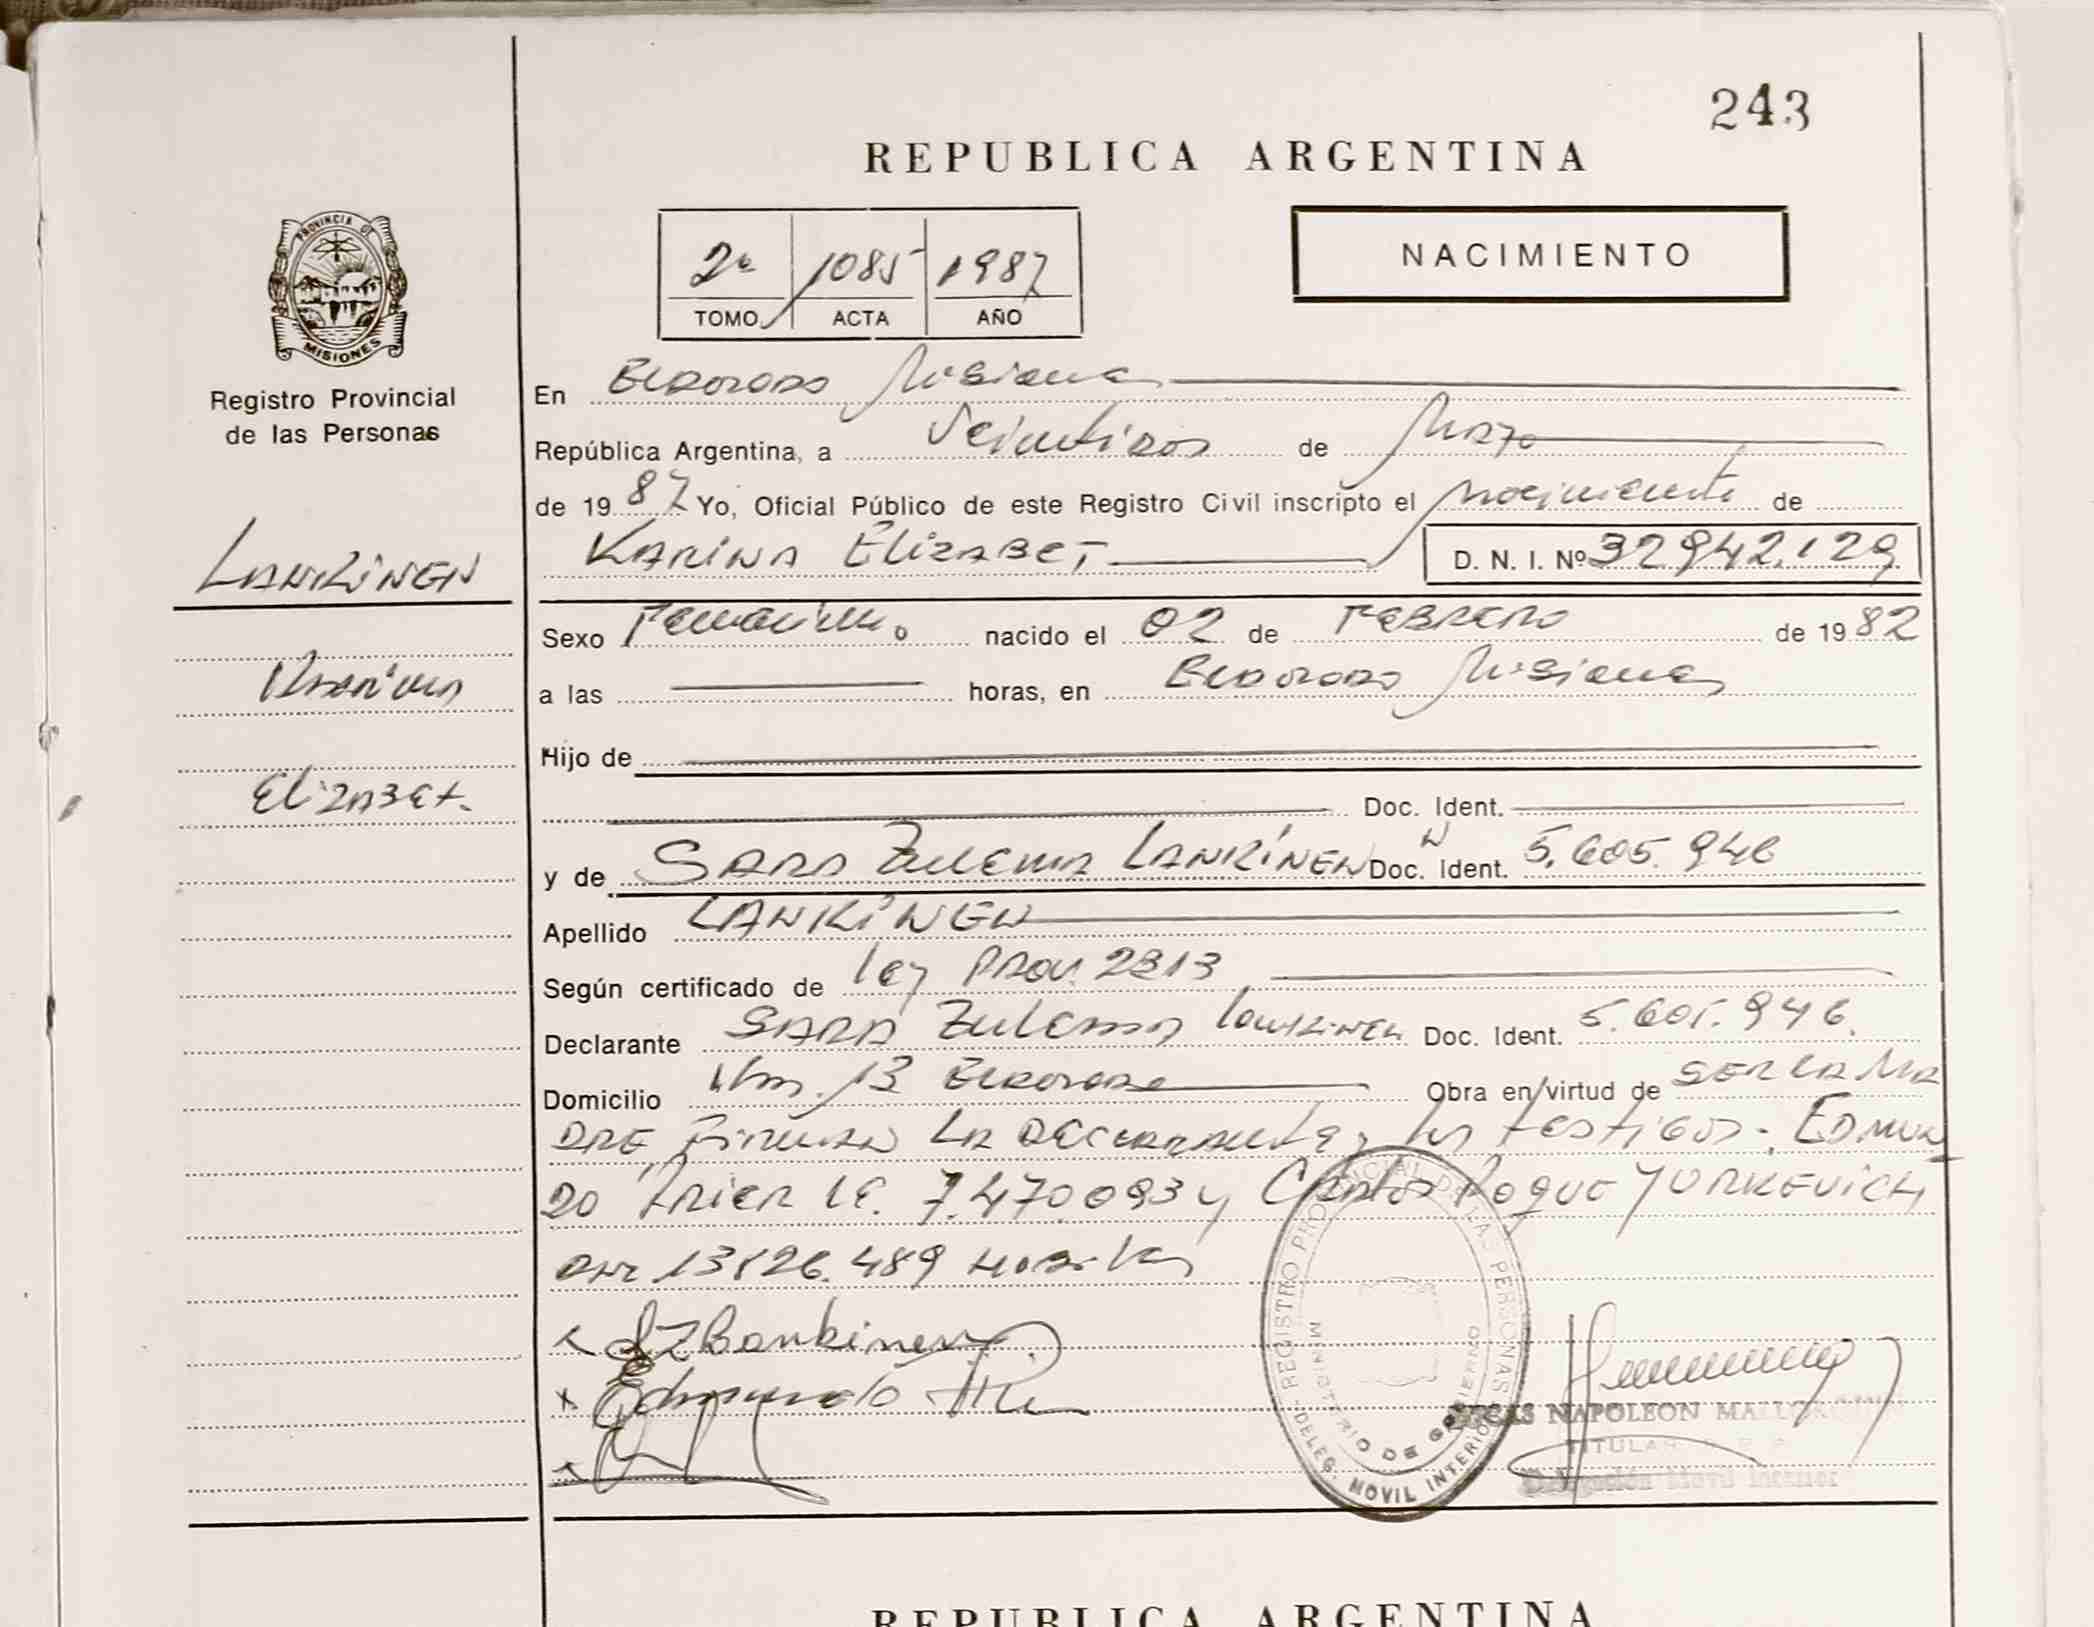 243
REPUBLICA ARGENTINA
PROVINCIA DE
MISIONES
Registro Provincial
de las Personas
2º 1085 1987
TOMO ACTA AÑO
NACIMIENTO
En Eldorado Misiones
República Argentina, a Veintidos de Marzo
de 1987 Yo, Oficial Público de este Registro Civil inscripto el nacimiento de
KARINA ELIZABET D. N. I. Nº 32.942.129
LANKINEN
Sexo Femenino nacido el 02 de FEBRERO de 1982
Karina
a las horas, en Eldorado Misiones
Hijo de
ELIZABET.
Doc. Ident.
y de SARA ZULEMA LANKINEN Doc. Ident. 5.605.946
Apellido LANKINEN
Según certificado de Ley PROV. 2313
Declarante SARA Zulema Lankinen Doc. Ident. 5.605.946.
Domicilio Km. 13 Eldorado Obra en/virtud de SER LA MA
DRE Firman LA declarante y los testigos: EDMUN
DO LE. 7.470.093 y Carlos Roque YURKEVICH
DNI 13.826.489
SZLankinen
Edmundo
REGISTRO PROVINCIAL DE LAS PERSONAS
MINISTERIO DE GOBIERNO
DELEG. MOVIL INTERIOR
NAPOLEON
TITULAR
Delegación Movil Interior
REPUBLICA ARGENTINA